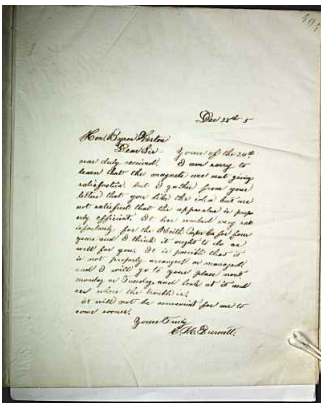 Dec 28th 5
Hon. Byron Weston
Dear Sir - Yours of the 24th
was duly received. I am sorry to
learn that the magnets are not giving
satisfaction, but I gather from your
letter that you like the idea but are
not satisfied that the apparatus is prop-
erly efficient. It has worked very sat-
isfactorily for the Paper Co for four
years and I think it ought to do as
well for you. It is possible that it
is not properly arranged or managed,
and I will go to your place next
monday or Tuesday and look at it and
see where the trouble is.
It will not be convenient for me to
come sooner.
Yours truly